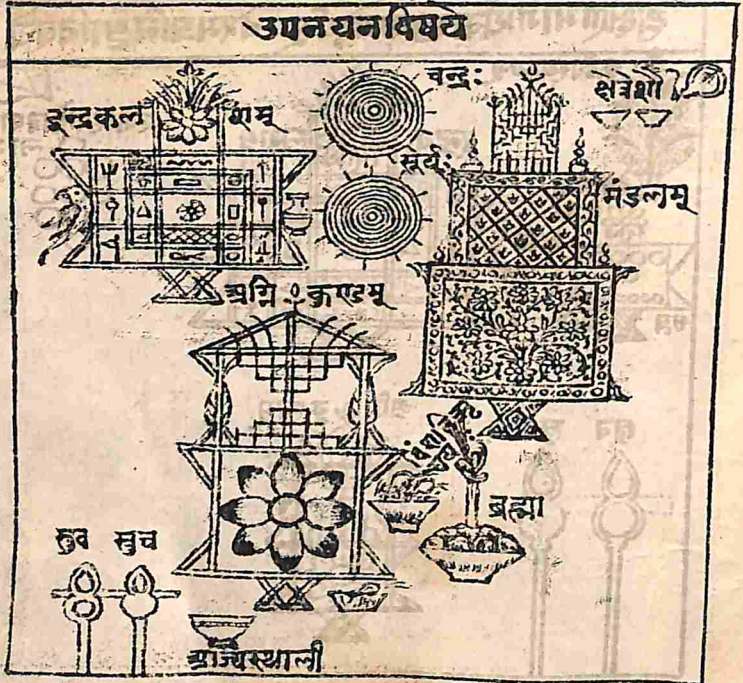 उपनयनविषये
इन्द्रकल शम्
चन्द्र:
क्षेत्रेशौ
सूर्य:
मंडलम्
अग्नि कुण्डम्
ब्रह्मा
स्रुव स्रुच
आज्यस्थाली